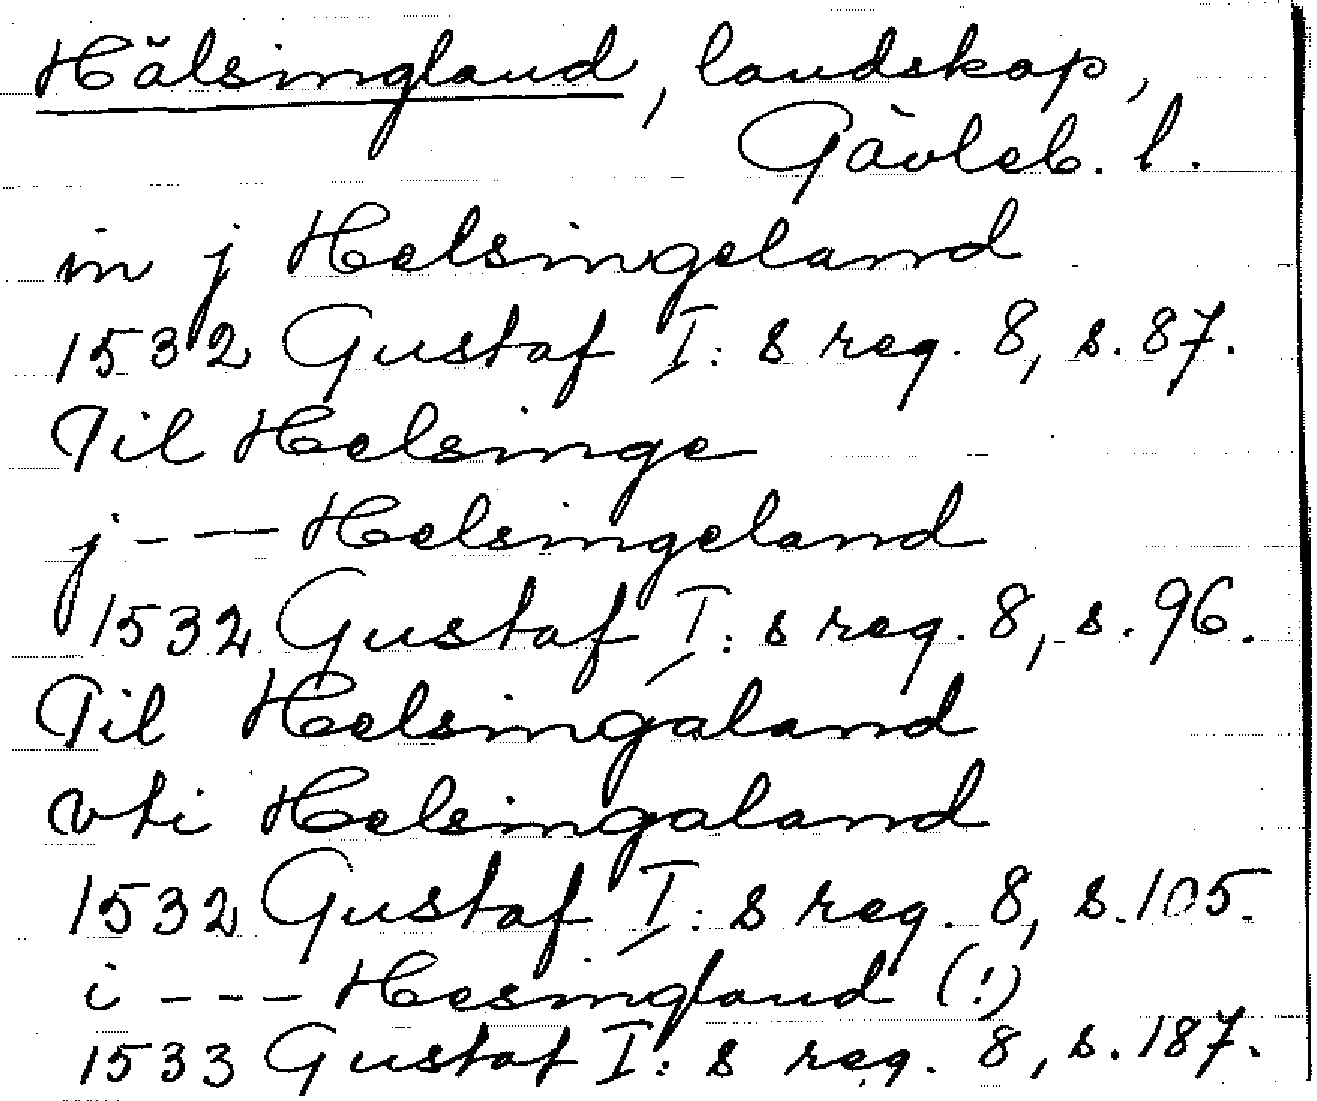 Hälsingland, landskap,
Gävleb. l.
in j Helsingeland
1532 Gustaf I:s reg. 8, s. 87.
Til Helsinge
j - — Helsingeland
1532 Gustaf I:s reg. 8, s. 96.
Til Helsingaland
vti Helsingaland
1532 Gustaf I:s reg. 8, s. 105.
i - - - Hesingland (!)
1533 Gustaf I:s reg. 8, s. 187.